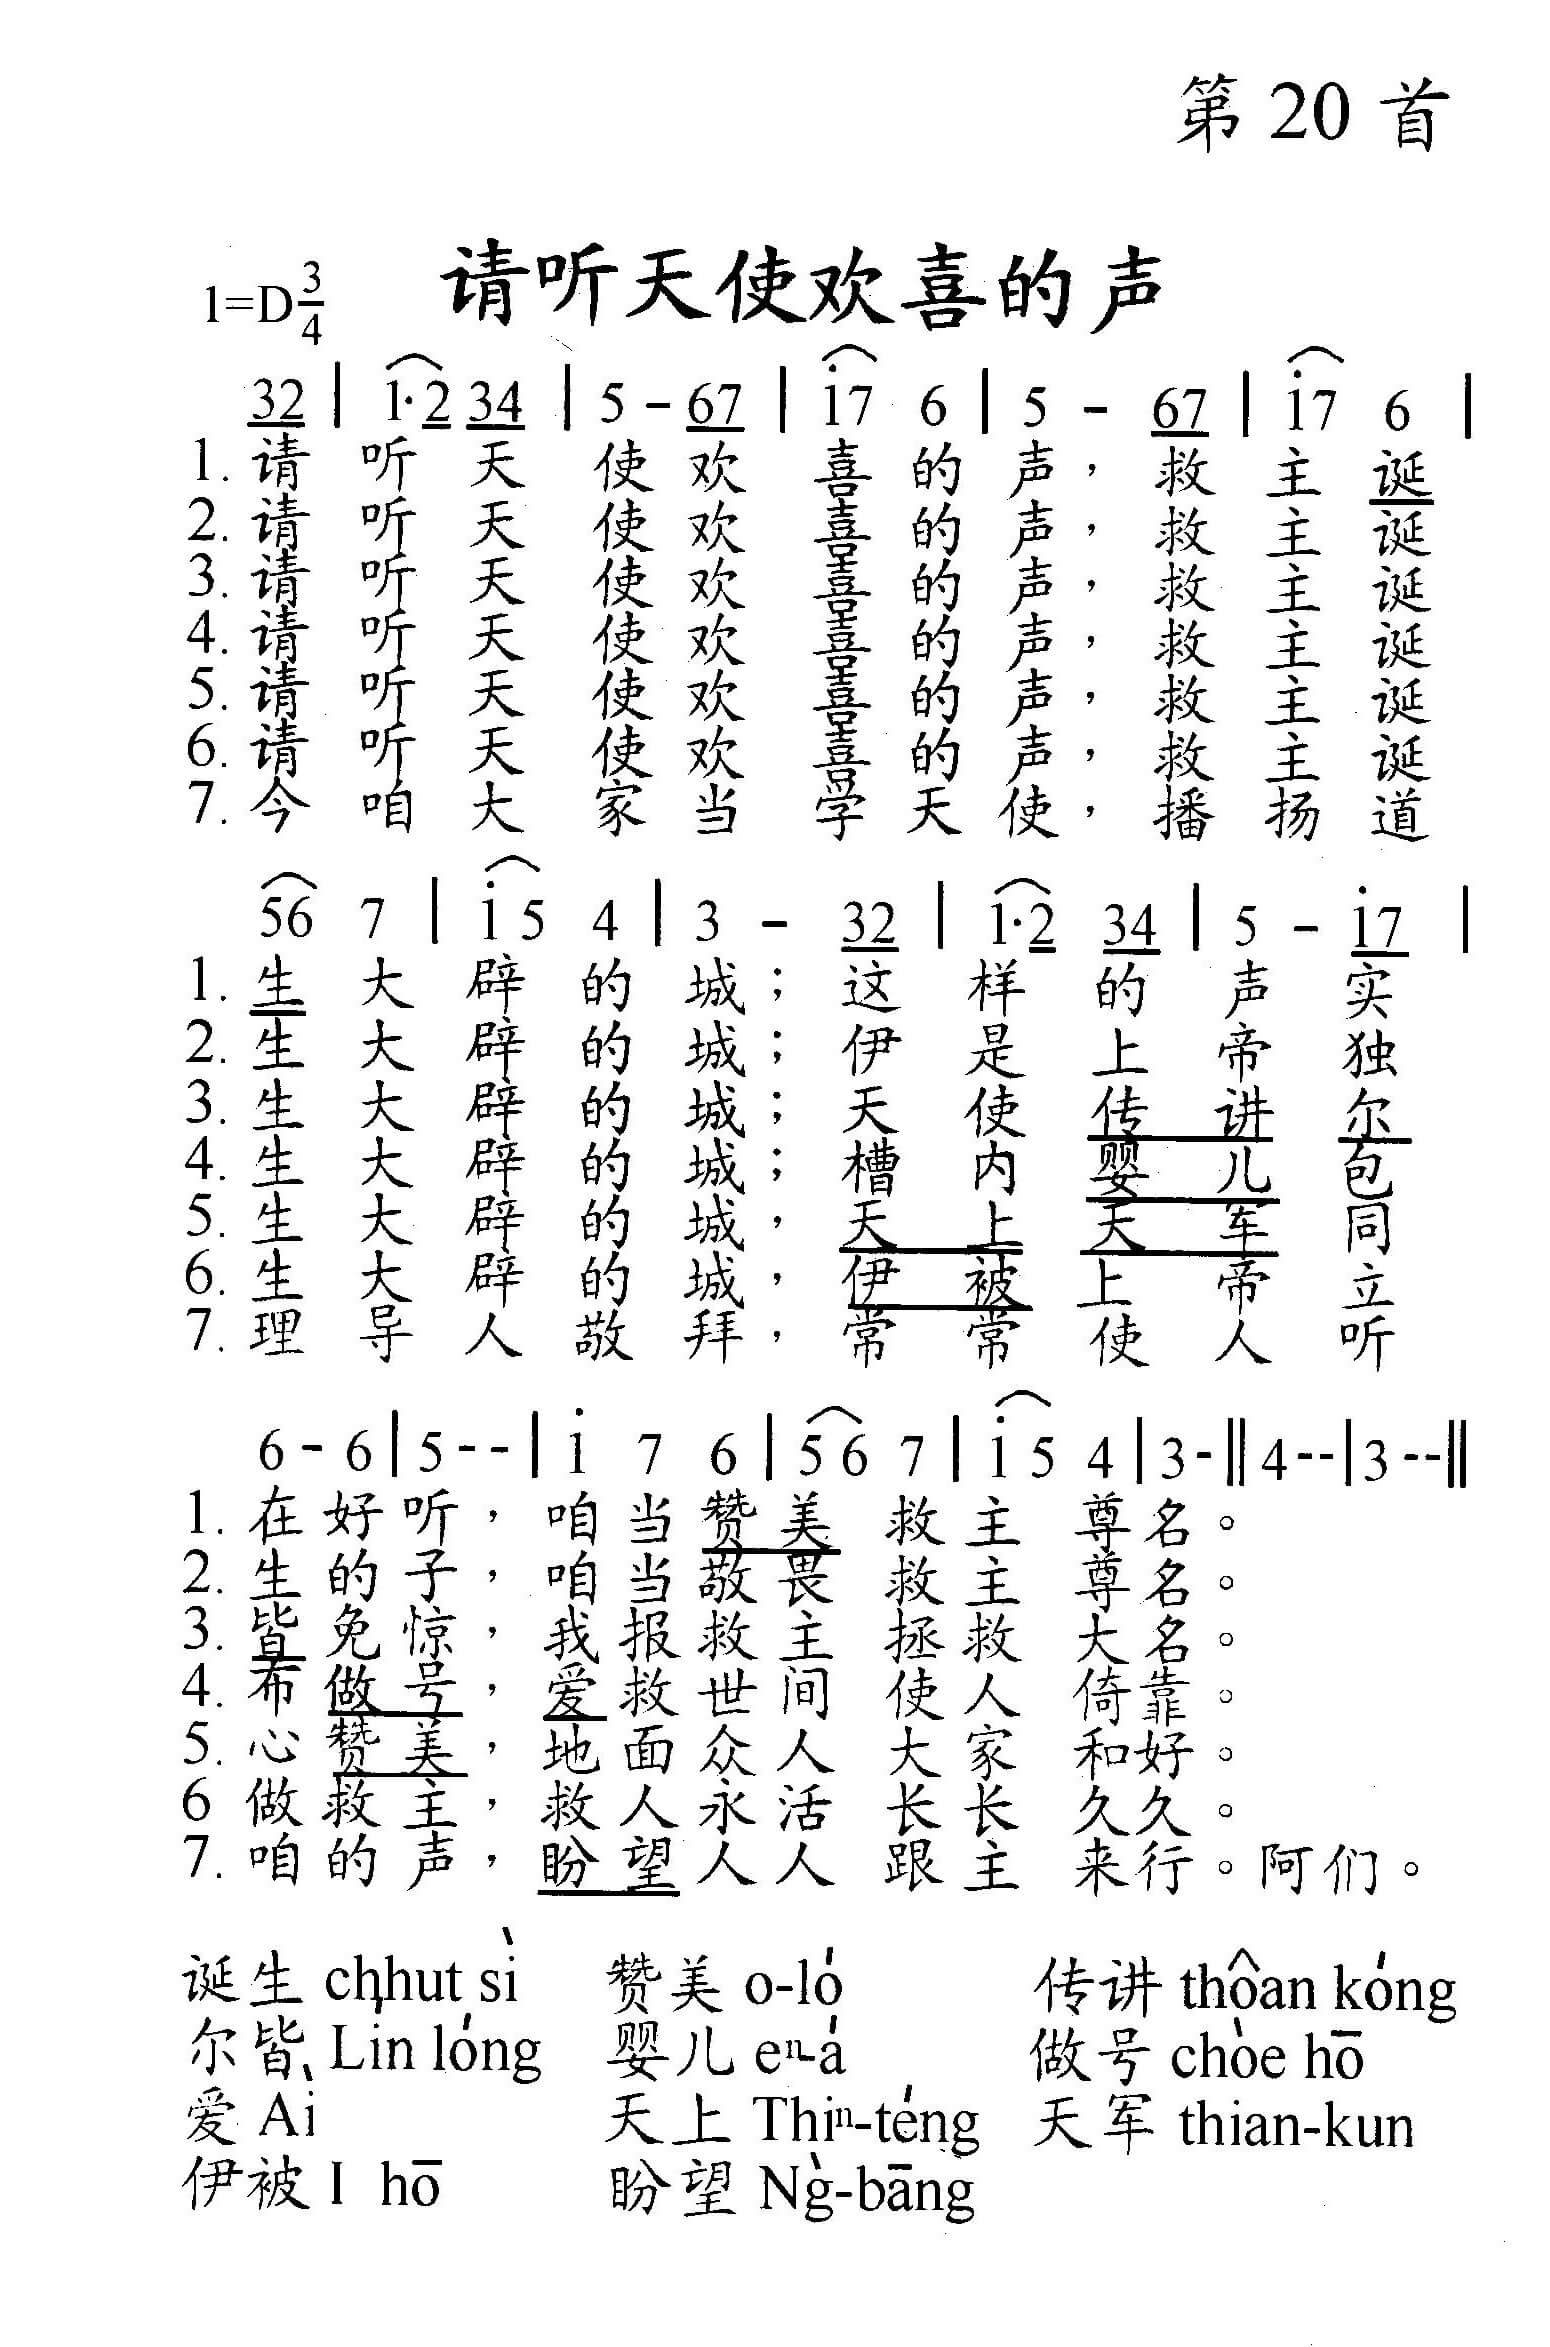 第 20 首
请听天使欢喜的声
1=D 3/4
32 | 1·2 34 | 5 - 67 | i7 6 | 5 - 67 | i7 6 |
1. 请听天使欢喜的声，救主诞
2. 请听天使欢喜的声，救主诞
3. 请听天使欢喜的声，救主诞
4. 请听天使欢喜的声，救主诞
5. 请听天使欢喜的声，救主诞
6. 请听天使欢喜的声，救主诞
7. 今咱大家当学天使，播扬道
56 7 | i 5 4 | 3 - 32 | 1·2 34 | 5 - i7 |
1. 生大辟的城；这样的声实
2. 生大辟的城；伊是上帝独
3. 生大辟的城；天使传讲尔
4. 生大辟的城；槽内婴儿包
5. 生大辟的城，天上天军同
6. 生大辟的城，伊被上帝立
7. 理导人敬拜，常常使人听
6 - 6 | 5 - - | i 7 6 | 5 6 7 | i 5 4 | 3 - || 4 - - | 3 - - ||
1. 在好听，咱当赞美救主尊名。
2. 生的子，咱当敬畏救主尊名。
3. 皆免惊，我报救主拯救大名。
4. 布做号，爱救世间使人倚靠。
5. 心赞美，地面众人大家和好。
6 做救主，救人永活长长久久。
7. 咱的声，盼望人人跟主来行。阿们。
诞生 chhut sì 赞美 o-ló 传讲 thôan kóng
尔皆 Lín lóng 婴儿 eⁿ-á 做号 chòe hō
爱 Ài 天上 Thiⁿ-téng 天军 thian-kun
伊被 I hō 盼望 Ǹg-bāng